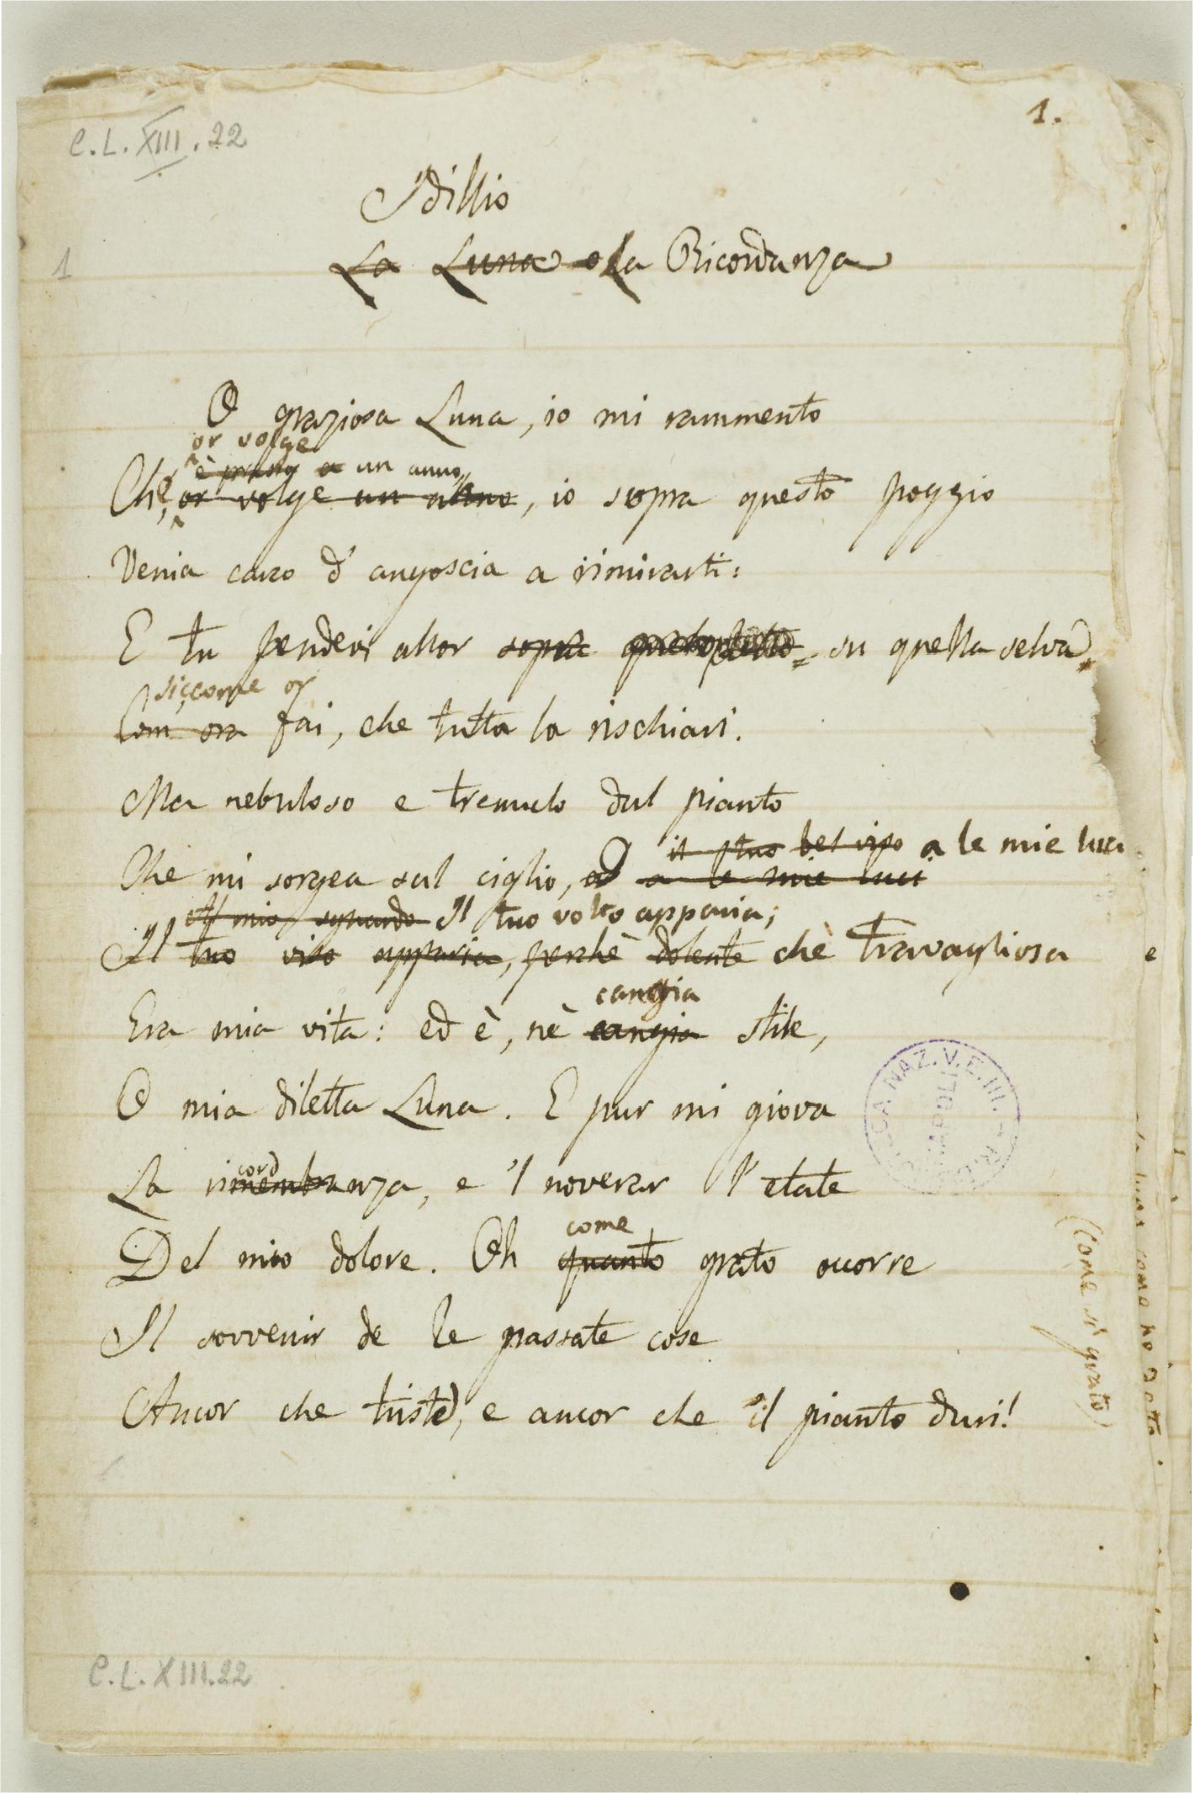 1.
C. L. XIII. 22
Idillio
1
La Luna o La Ricordanza
O graziosa Luna, io mi rammento
or volge
è presso a un anno
Che, or volge un anno, io sopra questo poggio
Venia carco d'angoscia a rimirarti:
E tu pendevi allor sopra su quella selva
siccome or
Com ora fai, che tutta la rischiari.
Ma nebuloso e tremulo dal pianto
il tuo bel viso a le mie luci
Che mi sorgea sul ciglio, a le mie luci
Al mio sguardo Il tuo volto apparia;
Il tuo viso apparia, perchè dolente chè travagliosa
cangia
Era mia vita: ed è, nè cangia stile,
O mia diletta Luna. E pur mi giova
cord
La rimembranza, e 'l noverar l'etate
come
Del mio dolore. Oh quanto grato occorre
Il sovvenir de le passate cose
Ancor che triste, e ancor che il pianto duri!
(come sì grato)
C. L. XIII. 22